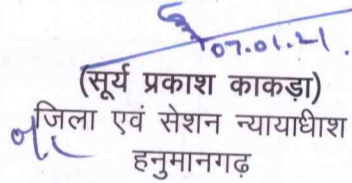 07.01.21.
(सूर्य प्रकाश काकड़ा)
जिला एवं सेशन न्यायाधीश
हनुमानगढ़